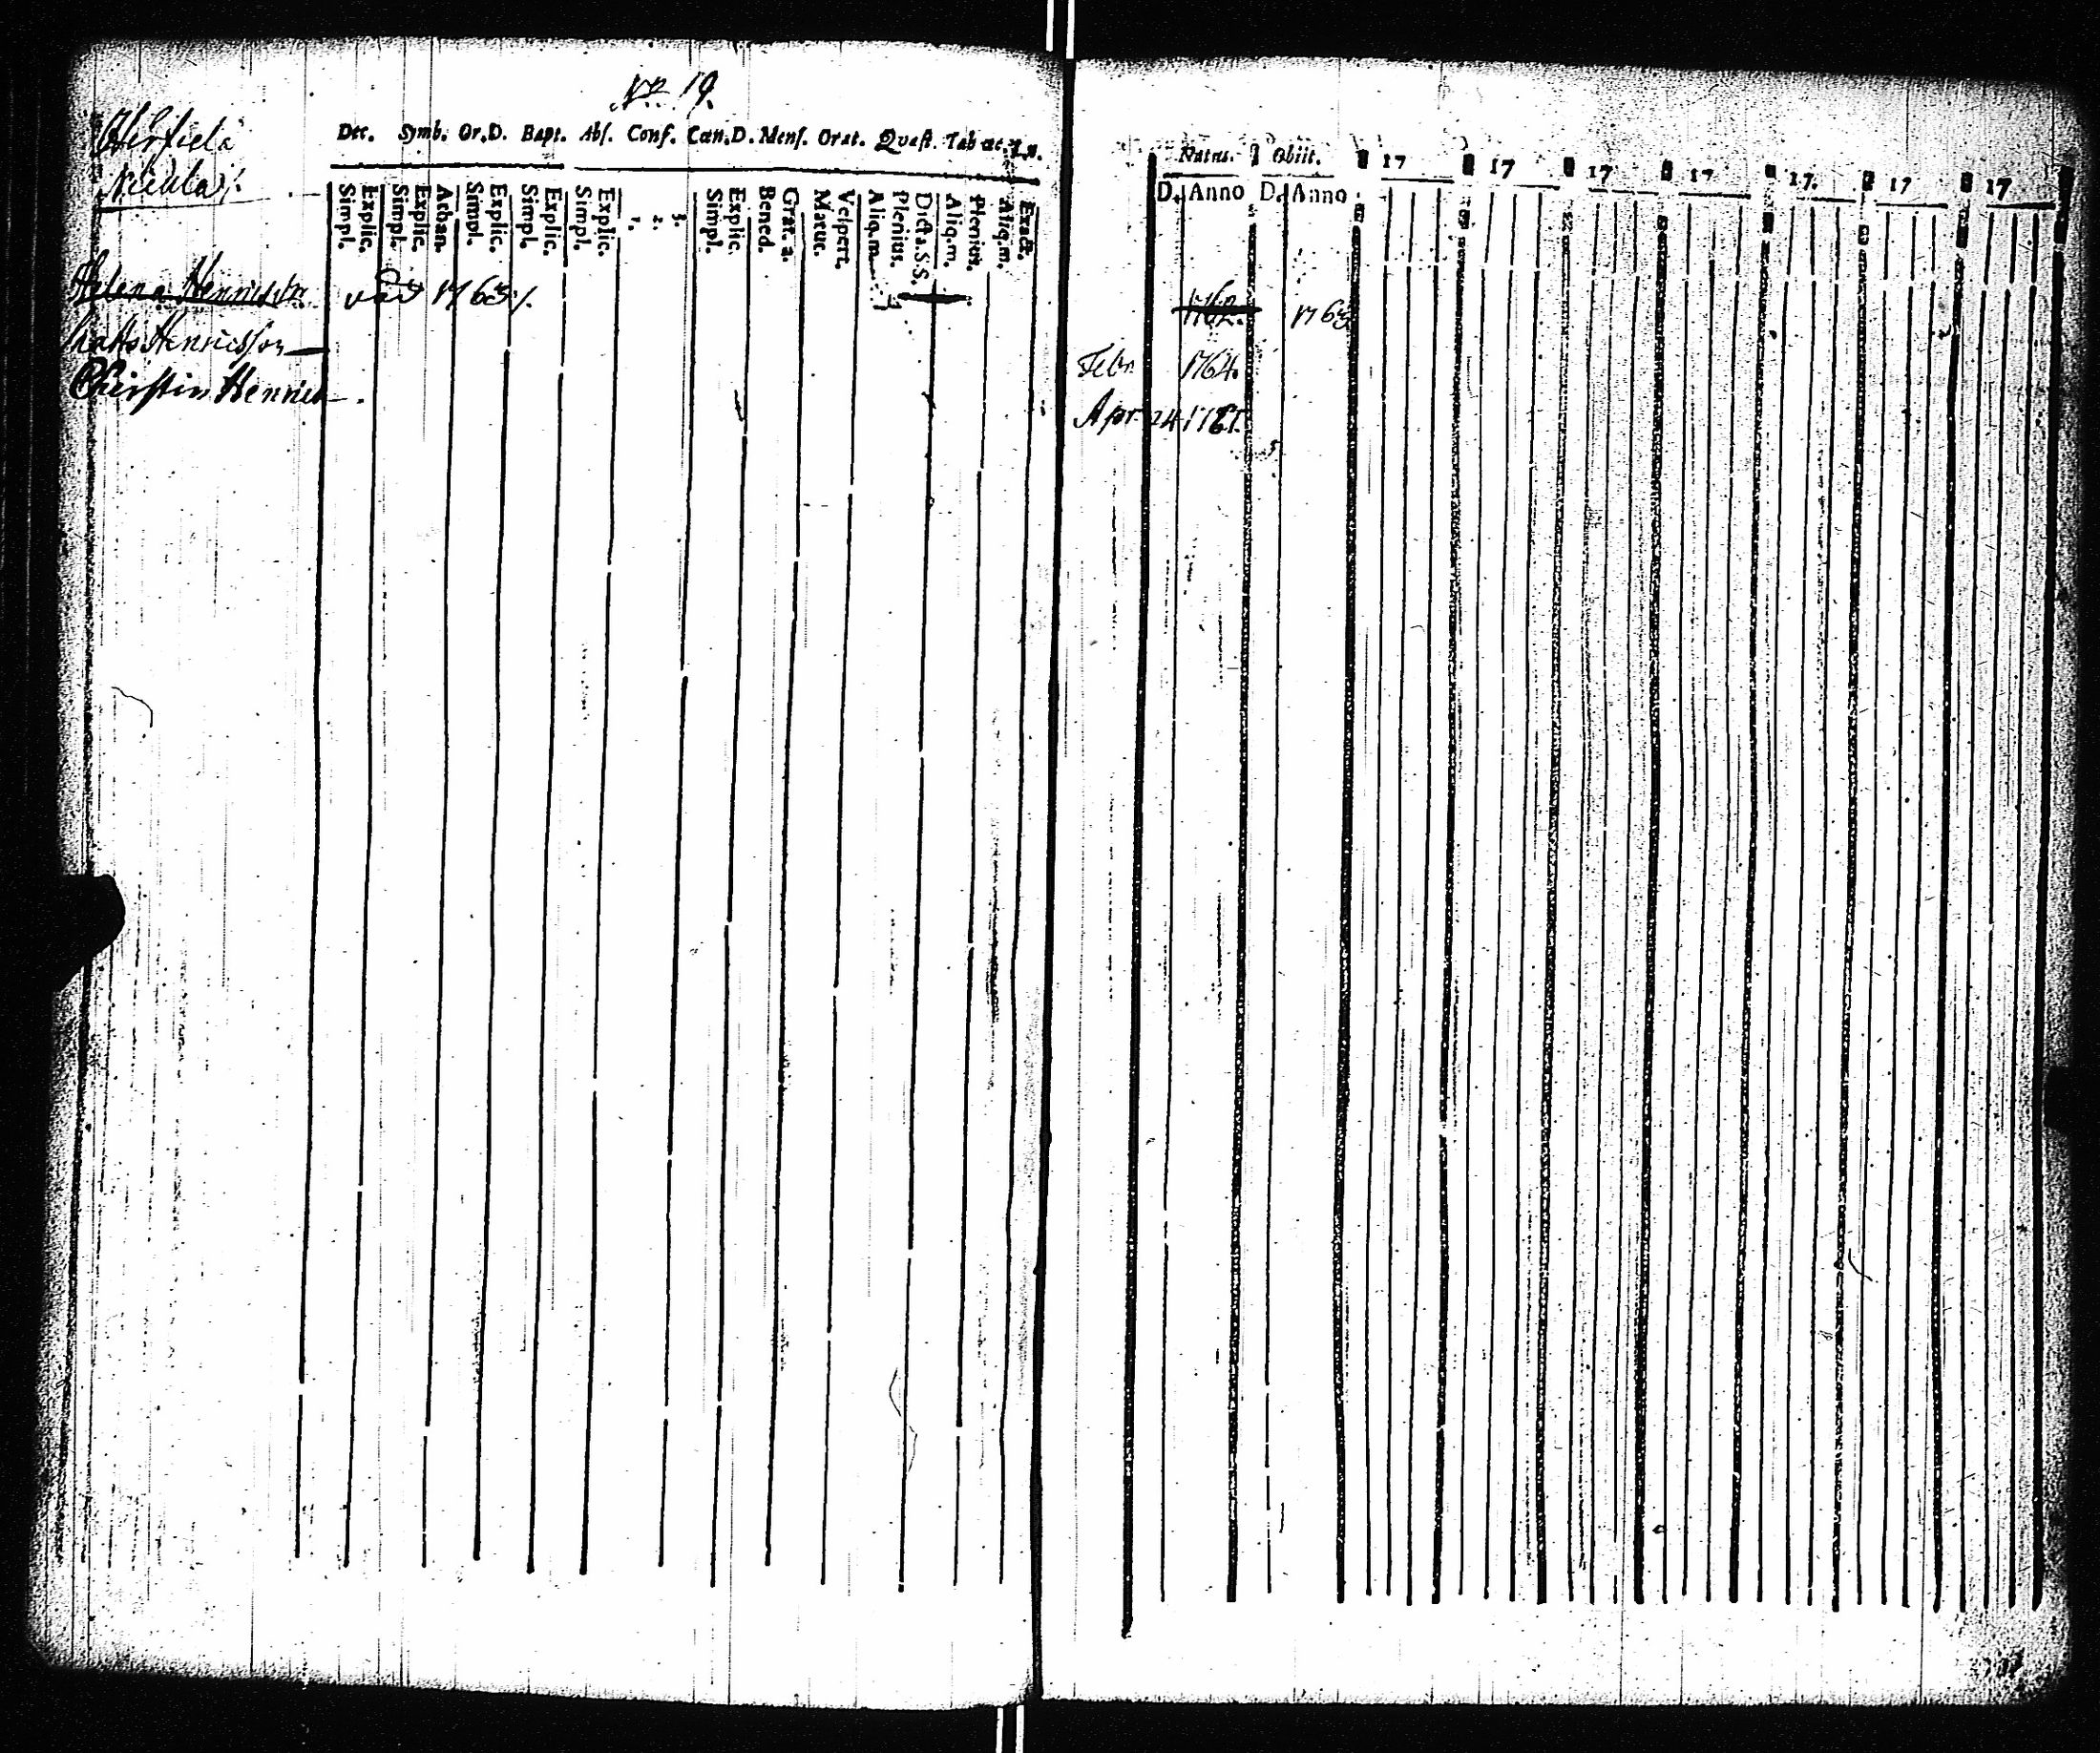 No 19.
Dec. Symb. Or.D. Bapt. Abs. Conf. Cœn.D. Mens. Orat. Quæst. Tab œc. Lu.
Nicula
Simpl. Explic. Simpl. Explic. Athan. Simpl. Explic. Simpl. Explic. Simpl. Explic. 1. 2. 3. Simpl. Explic. Bened. Grat. a. Matut. Vespert. Aliq.m. Plenius. Dicta.S.S. Aliq.m. Plenius. Aliq.m. Exact.
Helena Henricsdr
Matts Henricsson
Christin Henrics
Natus. Obiit. 17 17 17 17 17. 17 17
D. Anno D. Anno
1762. 1763
Febr 1764.
Apr. 24 1761.